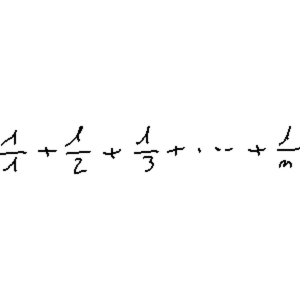 1/1 + 1/2 + 1/3 + ... + 1/n